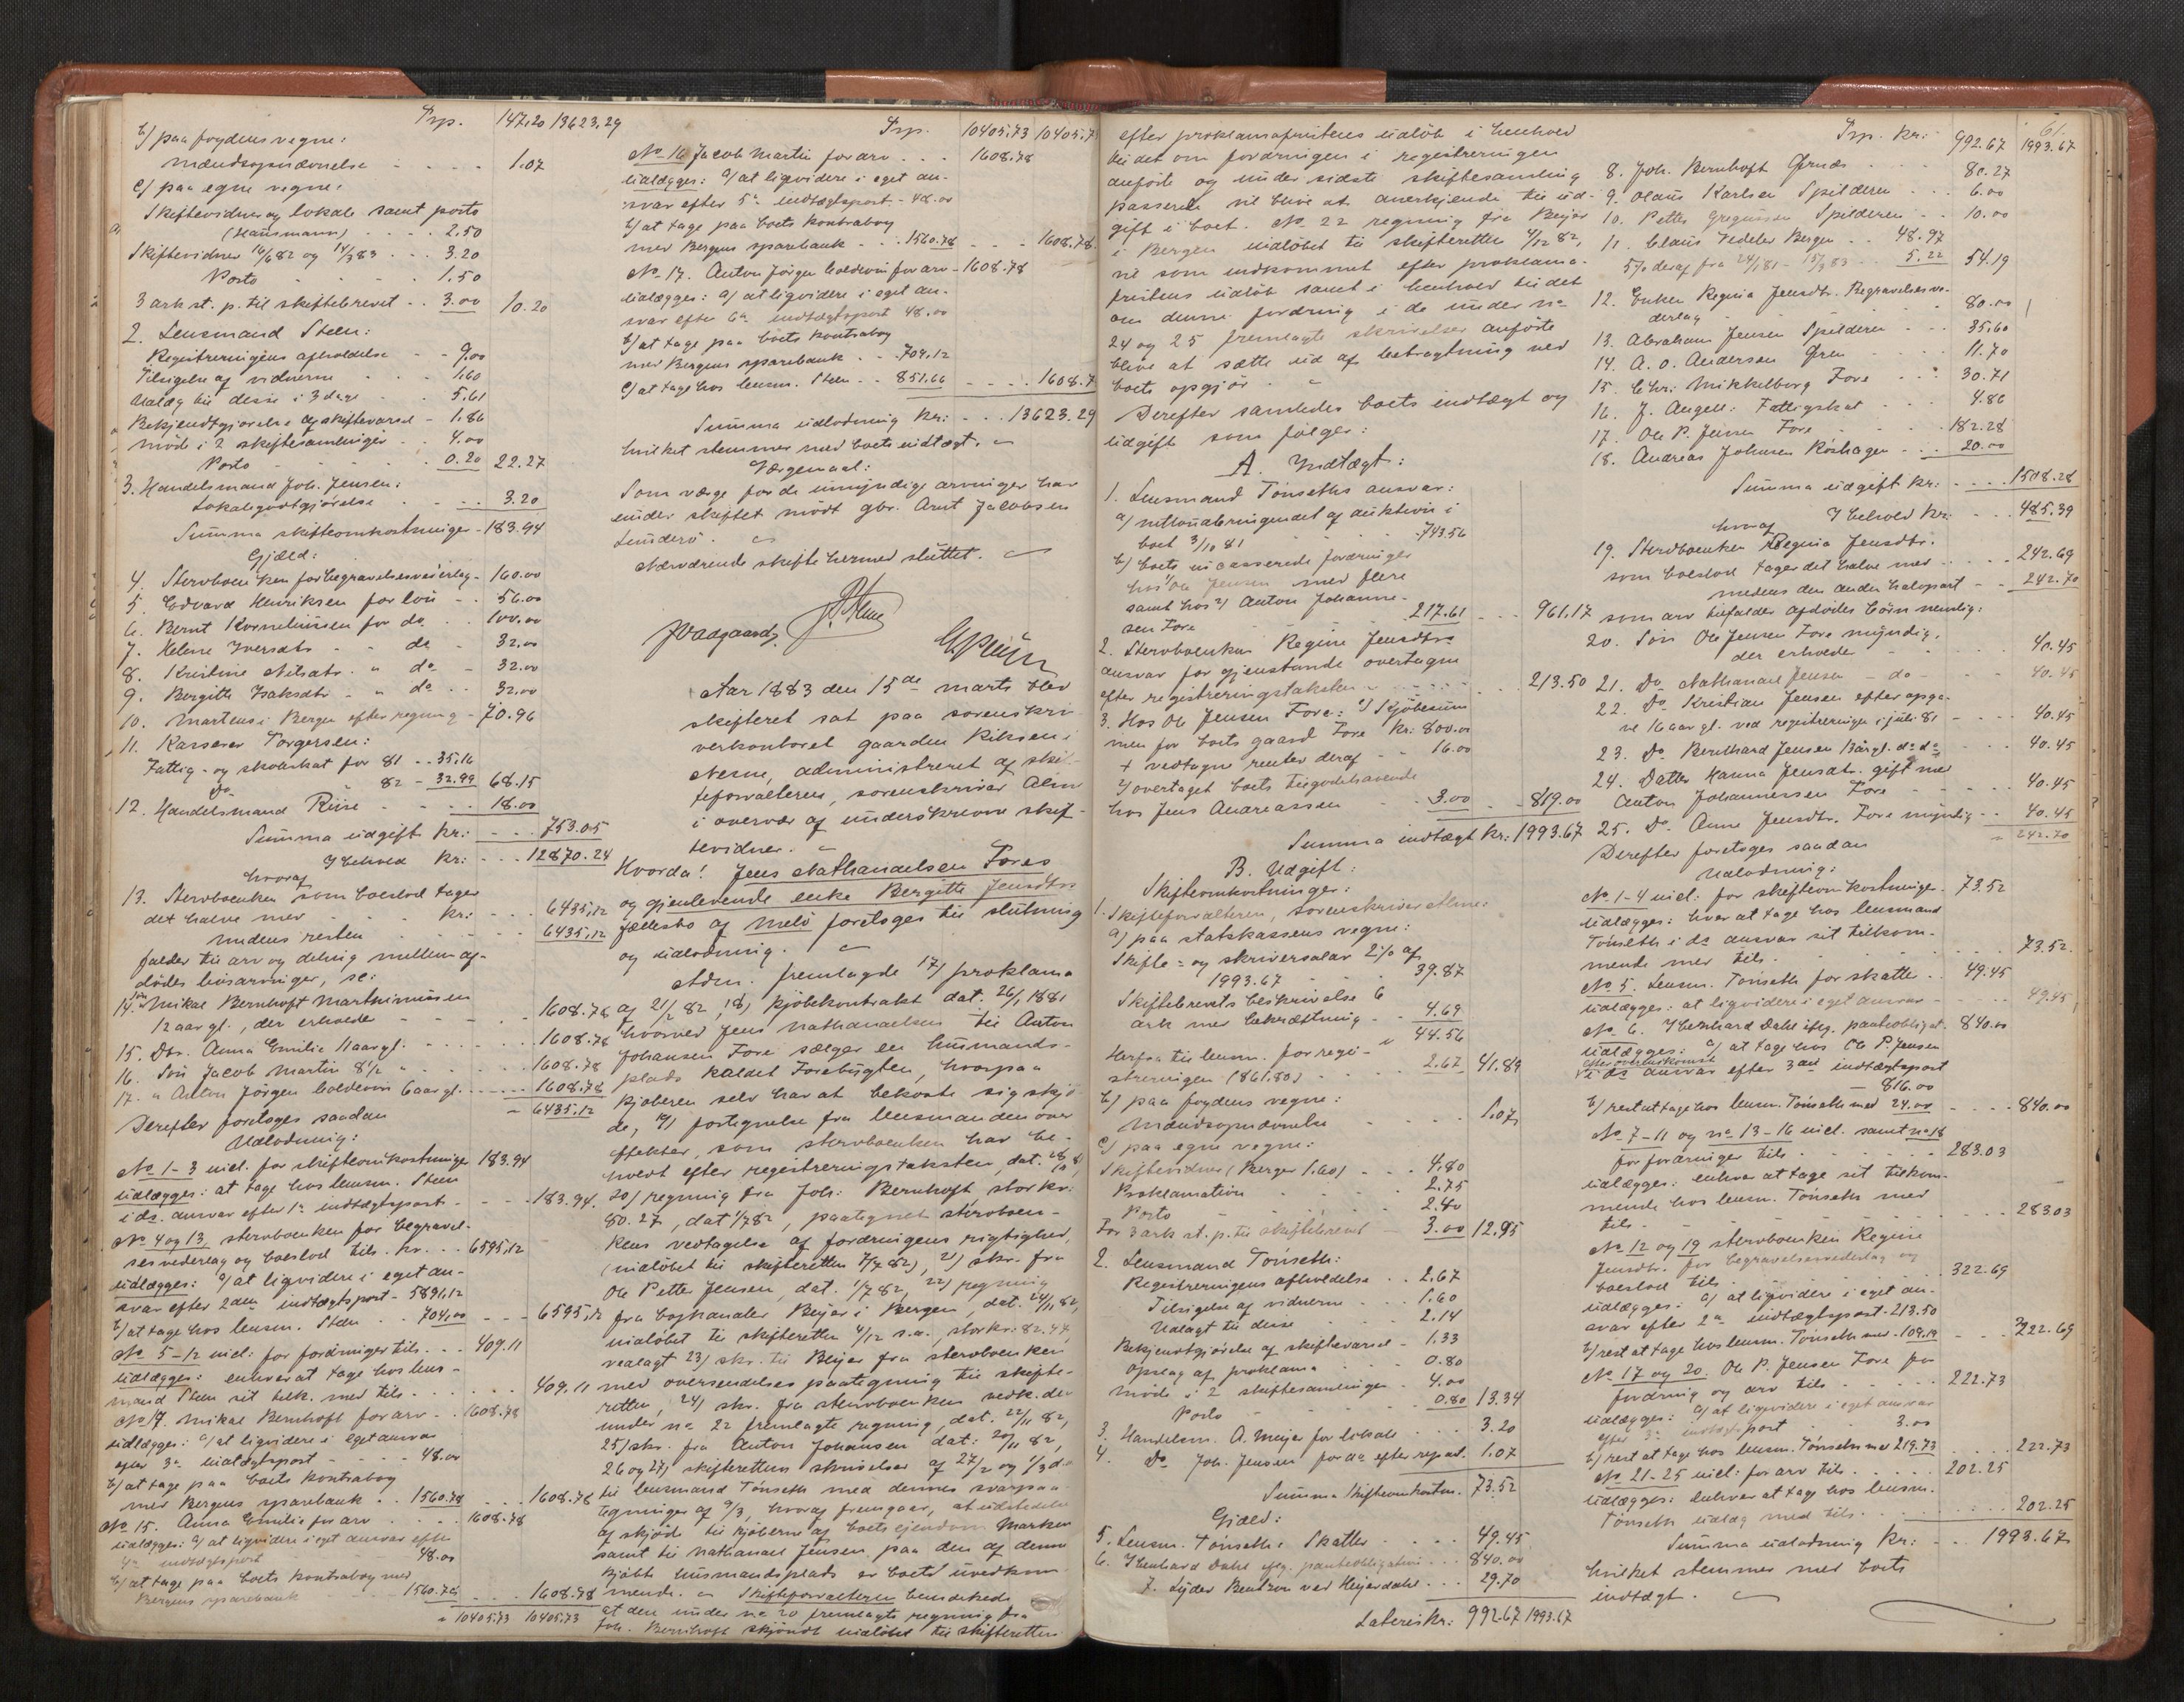 Trp. 147,20 13623,29
b/ paa fogdens vegne:
Mændsopnævnelse - - - 1.07
c/ paa egne vegne:
Skiftevidner og lokale samt porto
(Hausmann) - - - 2.50
Skiftevidner 16/6 82 og 14/3 83 - - - 3.20
Porto - - - 1.50
3 ark st. p. til skiftebrevet - - 3.00 10.20
2. Lensmand Steen:
Registreringens afholdelse - - 9.00
Tilsigelse af vidnerne - - 1.60
Udlæg til disse i 3 dage - - 5.61
Bekjendtgjørelse af skiftevarsel - 1.86
Møde i 2 skiftesamlinger - - 4.00
Porto - - - 0.20 22.27
3. Handelsmand Joh. Jensen:
Lokalegodtgjørelse - - - 3.20
Summa skifteomkostninger - 183.94
Gjæld:
4. Stervboenken for begravelsesvederlag - 160.00
5. Edvard Henriksen for løn - - 56.00
6. Bernt Korneliussen for do - - 100.00
7. Helene Iversdtr - " do - 32.00
8. Kristine Nilsdtr. " do - 32.00
9. Bergitte Isaksdtr - " do - 32.00
10. Martens i Bergen efter regning - 70.96
11. Kasserer Torgersen:
Fattig- og skoleskat for 81 - - 35.16
Do 82 - 32.99 68.15
12. Handelsmand Riise - - - 18.00
Summa udgift kr: - - - 753.05
I behold kr: - - - 12870.24
hvoraf
13. Stervboenken som boeslod tager
det halve med - - - kr: - - - 6435,12
medens resten - - - 6435,12
falder til arv og deling mellem af-
dødes livsarvinger, se:
14. Søn Mikal Bernhoft Martinussen
12 aar gl., der erholder - - - 1608.78
15. Dtr. Anna Emilie 11 aar gl. - - - 1608.78
16. Søn Jacob Martin 8 1/2 " - - - 1608.78
17. " Anton Jørgen Coldevin 6 aar gl. - - - 1608.78
" 6435,12
Derefter foretoges saadan
Udlodning:
No 1-3 incl. for skifteomkostninger 183.94
udlægges: at tage hos lensm. Steen
i ds. ansvar efter 1ste indtægtspost - - - 183.94.
No 4 og 13, stervboenken for begravel-
sesvederlag og boeslod tils. kr. - - - 6595,12
udlægges: a/ at ligvidere i eget an-
svar efter 2den indtægtspost - 5891,12
b/ at tage hos lensm. Steen - - 704,00 - - - 6595,12
No 5-12 incl: for fordringer tils. - - - 409.11
udlægges: enhver at tage hos lens-
mand Steen sit tilk. med tils. - - - 409.11
No 14. Mikal Bernhoft for arv - - 1608.78
udlægges: a/ at ligvidere i eget ansvar
efter 3die indtægtspost - - - 48.00
b/ at tage paa boets kontrabog
med Bergens sparebank - - 1560.78 - - - 1608.78
No 15. Anna Emilie for arv - - - 1608.78
udlægges: a/ at ligvidere i eget ansvar efter
4de indtægtspost - - - 48.00
b/ at tage paa boets kontrabog med
Bergens sparebank - - - 1560.78 - - - 1608.78
" 10405,73 10405,73
Trp. 10405,73 10405,7
No 16 Jacob Martin for arv - - - 1608.78
udlægges: a/ at ligvidere i eget an-
svar efter 5te indtægtspost - 48.00
b/ at tage paa boets kontrabog
med Bergens sparebank - - - 1560.78 - - - 1608.78.
No 17. Anton Jørgen Coldevin for arv - 1608.78
udlægges: a/ at ligvidere i eget an-
svar efter 6te indtægtspost 48.00
b/ at tage paa boets kontrabog
med Bergens sparebank - - - 709.12
c/ at tage hos lensm. Steen - - 851.66 - - - 1608.7
Summa udlodning kr: - - - 13623.29
hvilket stemmer med boets indtægt. -
Værgemaal:
Som værge for de umyndige arvinger har
under skiftet mødt gbr. Arnt Jacobsen
Lenderø.
Nærværende skifte hermed sluttet.
Aar 1883 den 15de marts blev
skifteret sat paa sorenskri-
verkontoret gaarden Riksen i
Nesne, administreret af skif-
teforvalteren, sorenskriver Alme
i overvær af underskrevne skif-
tevidner.
Hvorda! Jens Nathanaelsen Fores
og gjenlevende enke Bergitte Jensdtrs
fællesbo af Melø foretoges til slutning
og udlodning.
Adm. fremlagde 17/ proklama
af 21/2 82, 18/ kjøbekontrakt dat. 26/1 1881
hvorved Jens Nathanaelsen til Anton
Johansen Fore sælger en husmands-
plads kaldet Forebugten, hvorpaa
kjøberen selv har at bekoste sig skjø-
de, 19/ fortegnelse fra lensmanden over
effekter, som stervboenken har be-
holdt efter registreringstaksten, dat. 28/10 81
20/ regning fra Joh: Bernhoft, stor kr:
80.27, dat 1/7 82, paategnet stervboen-
kens vedtagelse af fordringens rigtighed,
(indløbet til skifteretten 7/7 82), 21/ skr. fra
Ole Petter Jensen, dat. 1/7 82, 22/ regning
fra boghandler Beijer i Bergen, dat. 24/11 82,
indløbet til skifteretten 4/12 s.a., stor kr: 82.44,
vedlagt 23/ skr. til Beijer fra stervboenken
med oversendelses paategning til skifte-
retten, 24/ skr. fra stervboenken vedk. den
under no 22 fremlagte regning, dat. 22/11 82,
25/ skr. fra Anton Johansen dat: 20/11 82,
26 og 27/ skifterettens skrivelser af 27/2 og 1/3 d.a.
til lensmand Tønseth med dennes svarpaa-
tegninger af 9/3, hvoraf fremgaar, at udstedelse
af skjøde til kjøberne af boets ejendom Marken
samt til Nathanael Jensen paa den af denne
kjøbte husmandsplads er boet uvedkom-
mende. - Skifteforvalteren bemærkede
at den under no 20 fremlagte regning fra
Joh. Bernhoft skjøndt indløbet til skifteretten
efter proklamafristens udløb i henhold
til det om fordringen i registreringen
anførte og under sidste skiftesamling
passerede vil blive at anerkjende til ud-
gift i boet. No 22 regning fra Beijer
i Bergen indløbet til skifteretten 4/12 82,
vil som indkommet efter proklama-
fristens udløb samt i henhold til det
om denne fordring i de under no
24 og 25 fremlagte skrivelser anførte
blive at sætte ud af betragtning ved
boets opgjør.
Derefter samledes boets indtægt og
udgift som følger:
A. Indtægt:
1. Lensmand Tønseths ansvar:
a/ nettoudbringendet af auktion i
boet 3/10 81 - 743.56
b/ boets incasserede fordringer
hos 1/ Ole Jensen med flere
samt hos 2/ Anton Johanne-
sen Fore - 217.61 - - - 961.17
2. Stervboenken Regine Jensdtrs
ansvar for gjenstande overtagne
efter registreringstaksten - - - 213.50
3. Hos Ole Jensen Fore: 1/ Kjøbesum-
men for boets gaard Fore kr: 800.00
+ vedtagne renter deraf - - 16.00
2/ overtaget boets tilgodehavende
hos Jens Andreassen - - 3.00 - - 819.00
Summa indtægt kr: 1993.67
B. Udgift:
Skifteomkostninger:
1. Skifteforvalteren, sorenskriver Alme:
a/ paa statskassens vegne:
Skifte- og skriversalær 2% af
1993.67 39.87
Skiftebrevets beskrivelse 6
ark med bekræftning - - 4.69
" 44.56
Herfra til lensm. for regi-
streringen (861.80) - - - 2.67 41.89
b/ paa fogdens vegne:
Mændsopnævnelse - - - 1.07
c/ paa egne vegne:
Skiftevidner (Berger 1.60) - - - 4.80
Proklamation - - - 2.75
Porto - - - 2.40
For 3 ark st. p. til skiftebrevet - 3.00 12.95
2. Lensmand Tønseth:
Registreringens afholdelse - - 2.67
Tilsigelse af vidnerne - - - 1.60
Udlagt til disse - - - 2.14
Bekjendtgjørelse af skiftevarsel - 1.33
Opslag af proklama - - 0.80
Møde i 2 skiftesamlinger - 4.00
Porto - - - 0.80 13.34
3. Handelsm. A. Meijer for lokale - - - 3.20
4. Do Joh. Jensen for do efter repart. 1.07
Summa skifteomkostn. 73.52
Gjæld:
5. Lensm. Tønseth: Skatter - - - 49.45
6. I. Ebenhard Dahl iflg. panteobligation - - - 840.00
7. Lyder Bentzon ved Heijerdahl - - - 29.70
Lateris kr: 992.67 1993.67
61.
Trp. kr: 992.67 1993.67
8. Joh. Bernhoft Grnæs - - - 80.27
9. Olaus Karlsen Spilderen - - - 6.00
10. Petter Gregussen Spilderen - - 10.00
11. Claus Vedeler Bergen - - 48.97
5% deraf fra 24/1 81 - 15/3 83 - - 5.22 54.19
12. Enken Regina Jensdtr. Begravelsesve-
derlag - - - 80.00
13. Abraham Jensen Spilderen - - - 35.60
14. A. O. Andersen Gren - - - 11.70
15. Chr. Mikkelborg Fore - - - 30.71
16. J. Angell: Fattigskat - - - 4.86
17. Ole P. Jensen Fore - - - 182.28
18. Andreas Johnsen Roshagen - - - 20.00
Summa udgift kr: - - - 1508.28
I behold kr: - - - 485.39
hvoraf
19. Stervboenken Regina Jensdtr.
som boeslod tager det halve med - - - 242.69
medens den anden halvpart - - 242.70
som arv tilfalder afdødes børn nemlig:
20. Søn Ole Jensen Fore myndig,
der erholder - - - 40.45
21. Do Nathanael Jensen - do - 40.45
22. Do Kristian Jensen efter opga-
ve 16 aar gl. ved registreringen i juli 81 - - - 40.45
23. Do Bernhard Jensen 13 aar gl. do do - - - 40.45
24. Datter Hanna Jensdtr. gift med
Anton Johannessen Fore - - - 40.45
25. Do. Anne Jensdtr. Fore myndig - - 40.45
" 242.70
Derefter foretoges saadan
Udlodning:
No 1-4 incl: for skifteomkostninger - 73.52
udlægges: hver at tage hos lensmand
Tønseth i ds ansvar sit tilkom-
mende med tils. - - - 73.52.
No 5. Lensm. Tønseth for skatter - - 49.45
udlægges: at ligvidere i eget ansvar - - - 49.45
No 6. I. Ebenhard Dahl iflg. panteobligat. - 840.00
udlægges: a/ at tage hos Ole P. Jensen
efter overenskomst
i ds ansvar efter 3die indtægtspost
- 816.00
b/ rest at tage hos lensm. Tønseth med 24.00 - - - 840.00
No 7-11 og no 13-16 incl. samt no 18
for fordringer tils - - - 283.03
udlægges: enhver at tage sit tilkom-
mende hos lensm. Tønseth med
tils. - - - 283.03
No 12 og 19 stervboenken Regine
Jensdtr. for begravelsesvederlag og
boeslod tils - - - 322.69
udlægges: a/ at ligvidere i eget an-
svar efter 2den indtægtspost - 213.50
b/ rest at tage hos lensm. Tønseth med - 109.19 - - 322.69
No 17 og 20. Ole P. Jensen Fore for
fordring og arv tils - - - 222.73
udlægges: a/ at ligvidere i eget ansvar
efter 3die indtægtspost - - - 3.00
b/ rest at tage hos lensm. Tønseth med 219.73 - - - 222.73
No 21-25 incl: for arv tils. - - - 202.25
udlægges: Enhver at tage hos lensm.
Tønseth udlæg med tils. - - - 202.25
Summa udlodning kr: - - - 1993.67
hvilket stemmer med boets
indtægt.